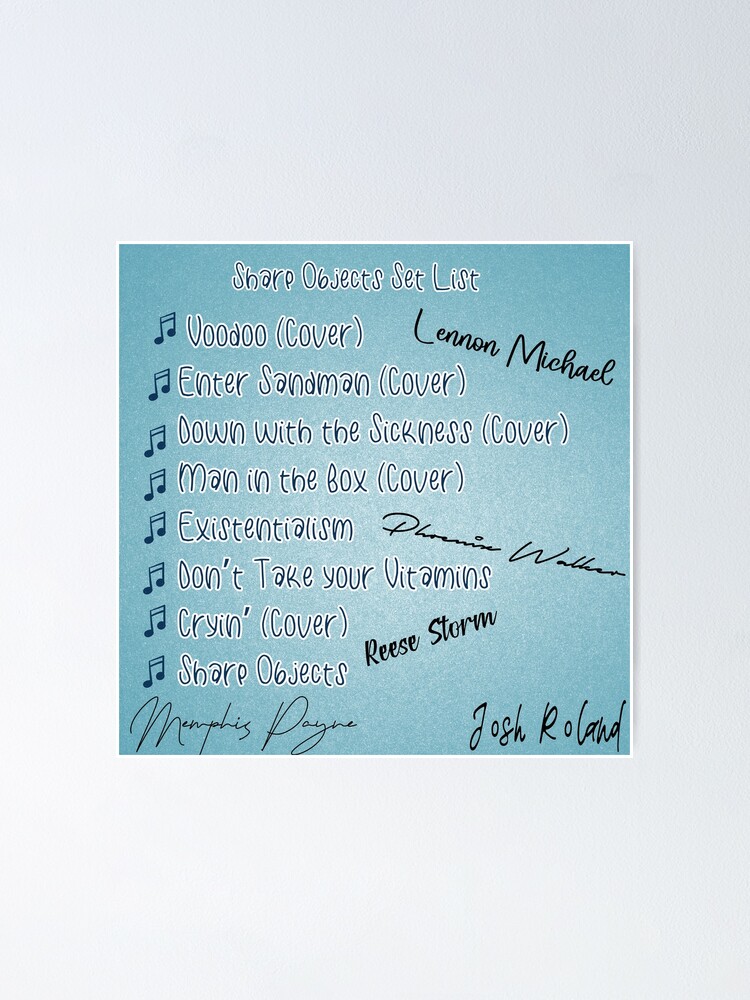 Sharp Objects Set List
Voodoo (Cover)
Lennon Michael
Enter Sandman (Cover)
Down with the Sickness (Cover)
Man in the Box (Cover)
Existentialism
Phoenix Walker
Don't Take your Vitamins
Cryin' (Cover)
Reese Storm
Sharp Objects
Memphis Payne
Josh Roland